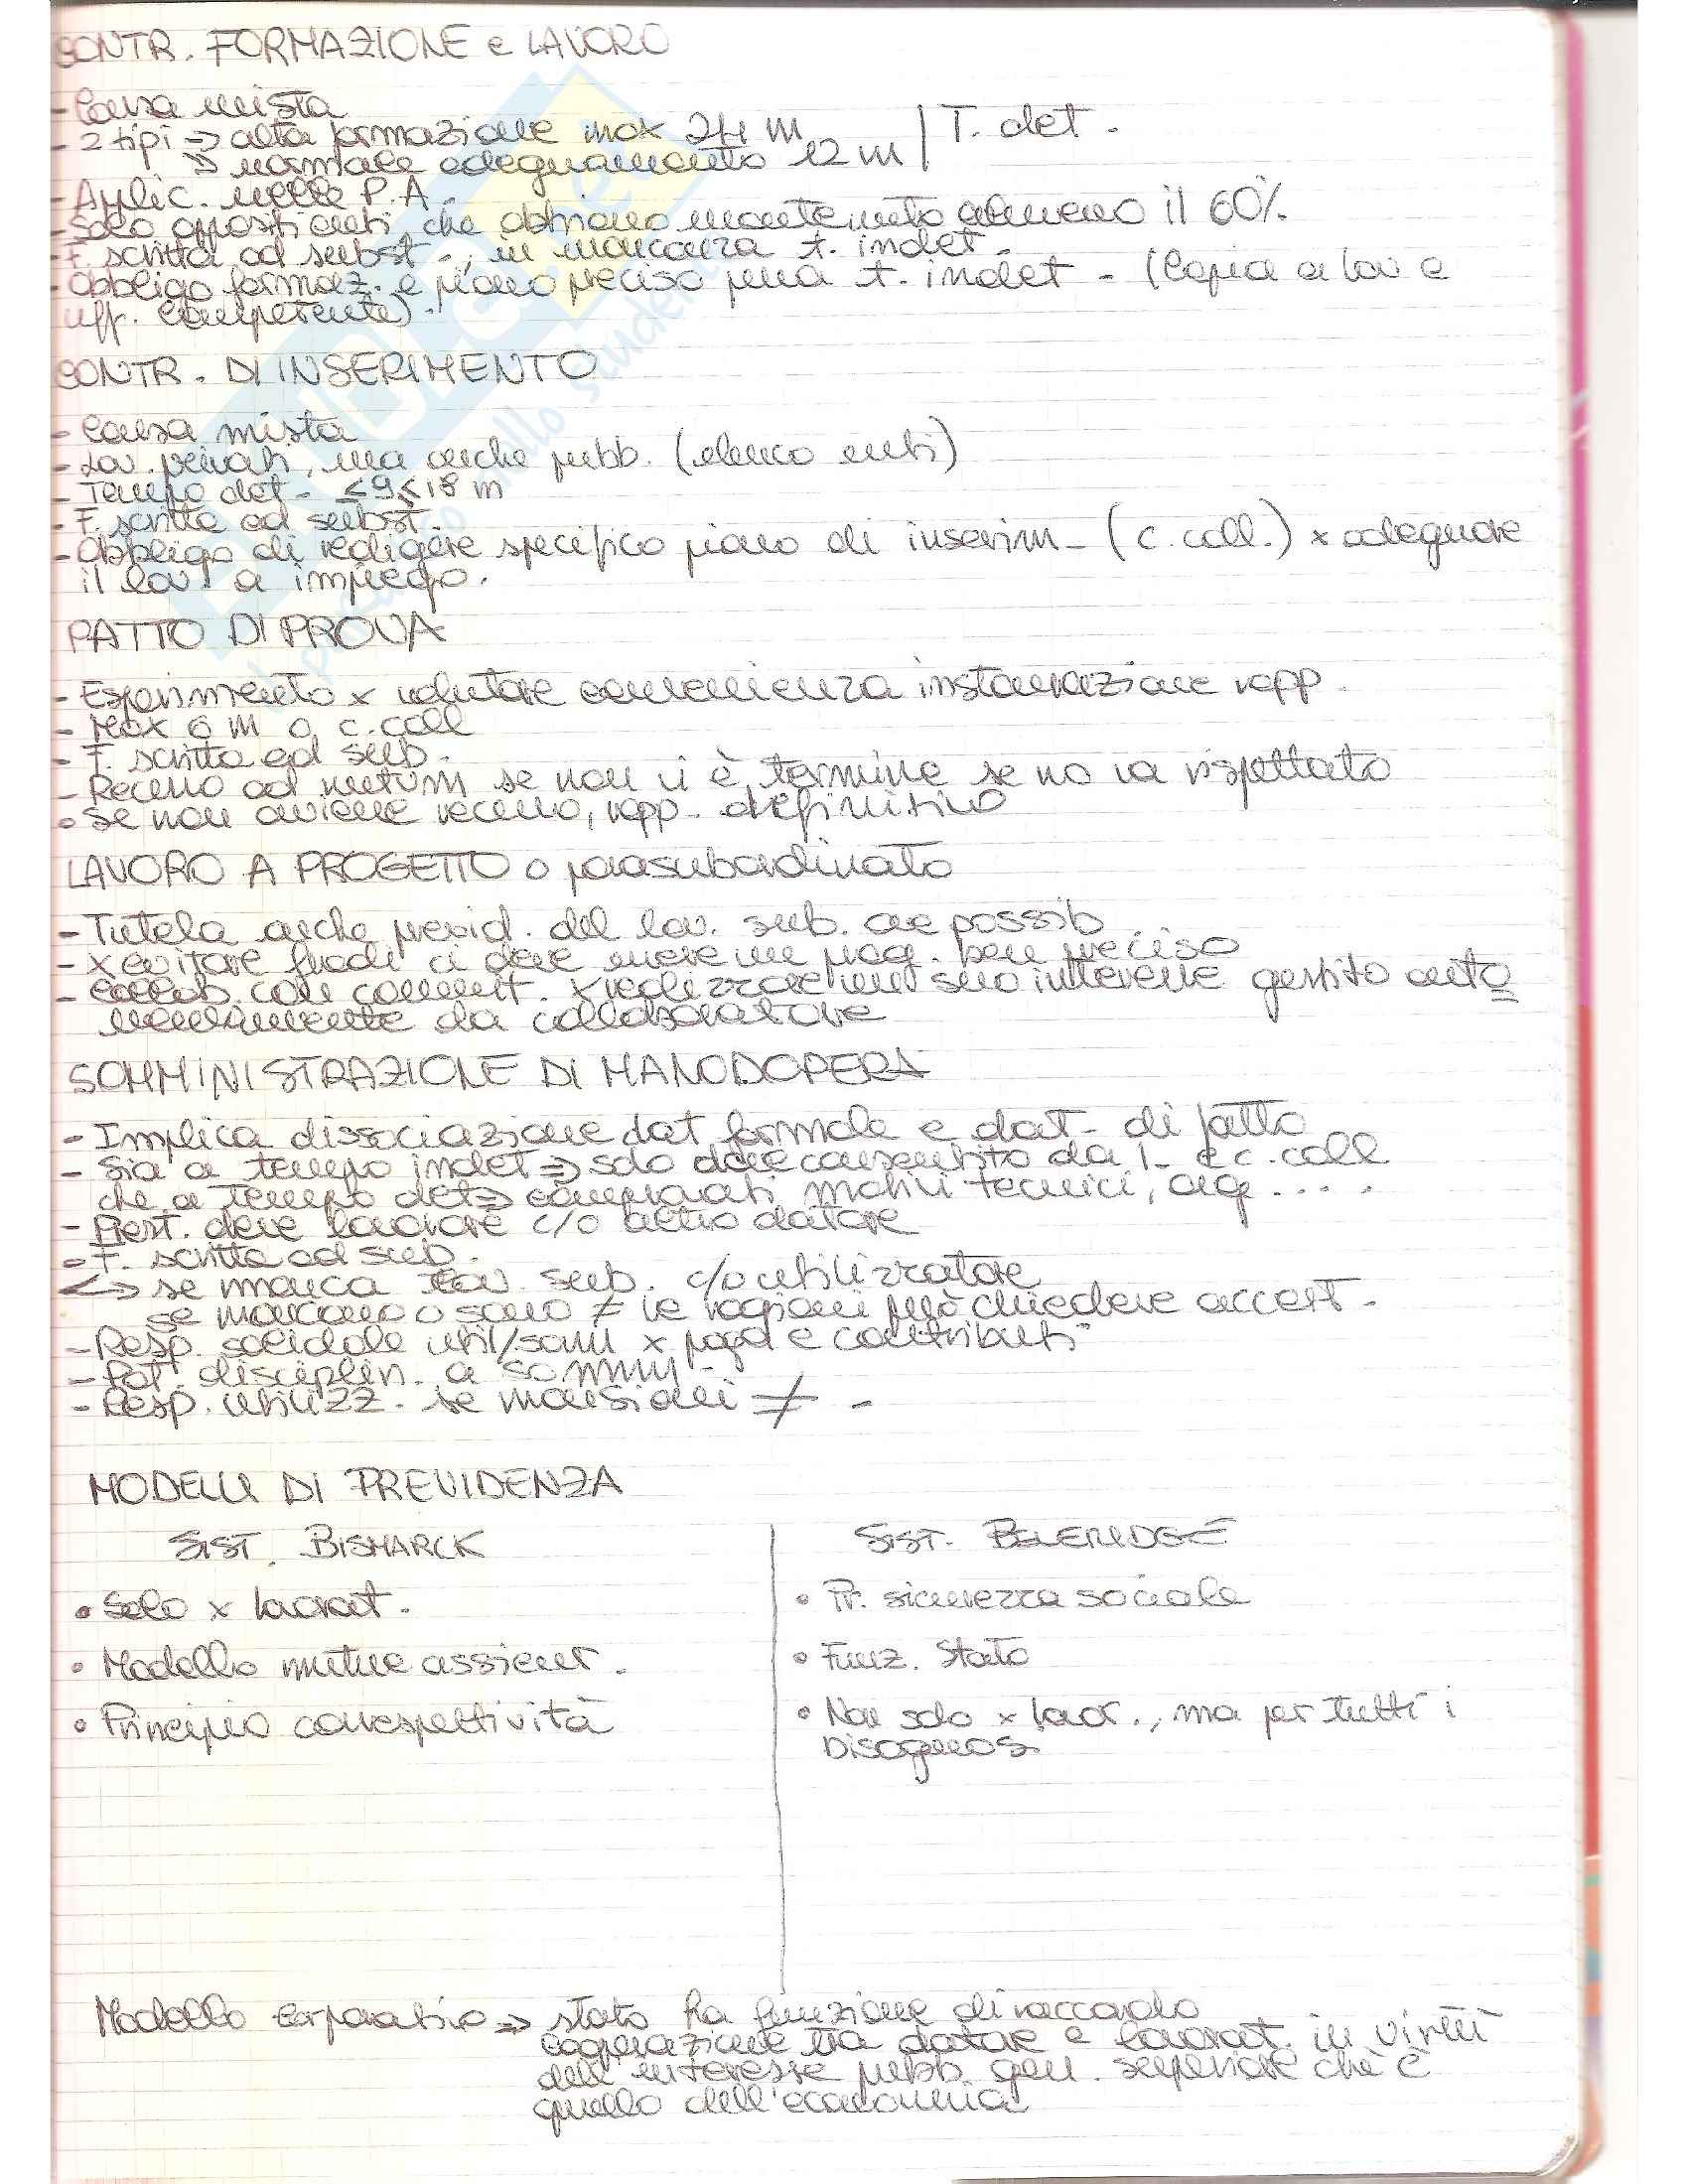 CONTR. FORMAZIONE e LAVORO
- Causa mista
- 2 tipi => alta formazione max 24 m | T. det.
=> normale adeguamento 12 m
- Applic. nelle P.A.
- Solo apposit. enti, che abbiano mantenuto almeno il 60%
- F. scritta ad subst., in mancanza t. indet.
- Obbligo formaz. e piano preciso pena t. indet - (Copia a lav e
uff. competente).
CONTR. DI INSERIMENTO
- Causa mista
- Lav. privati, ma anche pubb. (elenco enti)
- Tempo det - ≤9≤18 m
- F. scritta ad subst.
- Obbligo di redigere specifico piano di inserim - (c. coll.) x adeguare
il lav. a impiego.
PATTO DI PROVA
- Esperimento x valutare convenienza instaurazione rapp.
- Max 6 m o c.coll
- F. scritta ad sub.
- Recesso ad nutum se non vi è termine se no va rispettato
• Se non avviene recesso, rapp. definitivo
LAVORO A PROGETTO o parasubordinato
- Tutela anche previd. del lav. sub. ove possib.
- x evitare frodi ci deve essere un prog. ben preciso
- Collab. con committ. x realizzare un suo interesse gestito auto
nomamente da collaboratore
SOMMINISTRAZIONE DI MANODOPERA
- Implica dissociazione dat. formale e dat. di fatto
- Sia a tempo indet => solo dove consentito da l. e c.coll
che a tempo det => comprovati motivi tecnici, org....
- Prest. deve lavorare c/o altro datore
- F. scritta ad sub.
<-> se manca lav. sub. c/o utilizzatore
se mancano o sono ≠ le ragioni può chiedere accert.
- Resp. solidale util/somm x paga e contributi
- Pot. disciplin. a somm.
- Resp. utilizz. se mansioni ≠ -
MODELLI DI PREVIDENZA
SIST. BISMARCK
• Solo x lavorat.
• Modello mutue assicur.
• Principio corrispettività
SIST. BEVERIDGE
• Pr. sicurezza sociale
• Funz. Stato
• Non solo x lavor., ma per tutti i
bisognosi.
Modello Corporativo => stato ha funzione di raccordo
cooperazione tra datore e lavorat. in virtù
dell'interesse pubb. gen. superiore che è
quello dell'economia